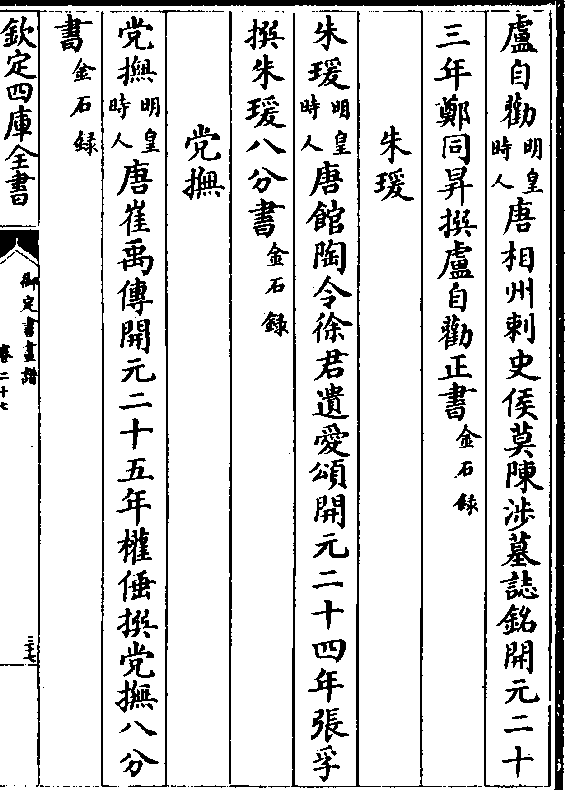 盧自勸明皇時人唐相州刺史侯莫陳涉墓誌銘開元二十
三年鄭同昇撰盧自勸正書金石録
朱瑗
朱瑗明皇時人唐館陶令徐君遺愛頌開元二十四年張孚
撰朱瑗八分書金石録
党撫
党撫明皇時人唐崔禹傳開元二十五年權倕撰党撫八分
書金石録
欽定四庫全書
御定書畫譜
卷二十七
三七